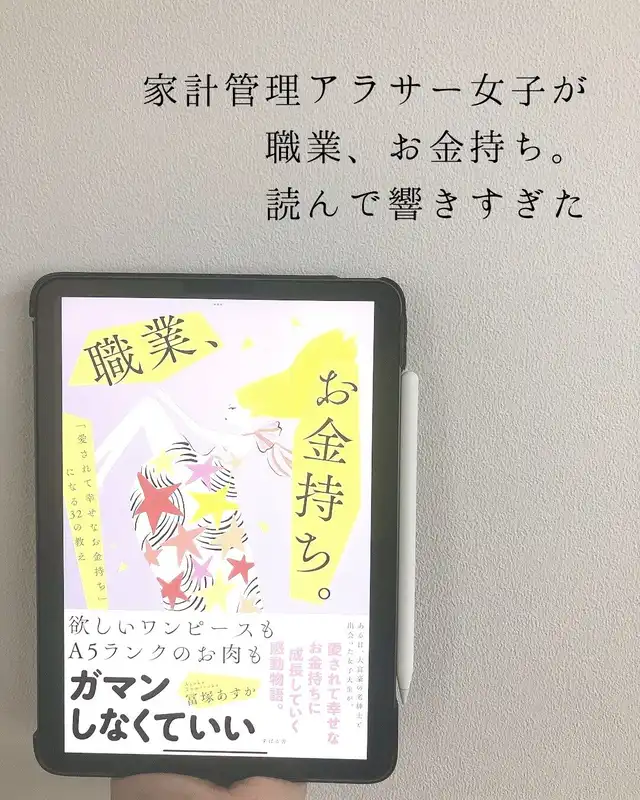 家計管理アラサー女子が
職業、お金持ち。
読んで響きすぎた
職業、
お金持ち。
「愛されて幸せなお金持ち」
になる32の教え
欲しいワンピースも
A5ランクのお肉も
ガマン
しなくていい
冨塚あすか
愛されて幸せな
お金持ちに
成長していく
感動物語。